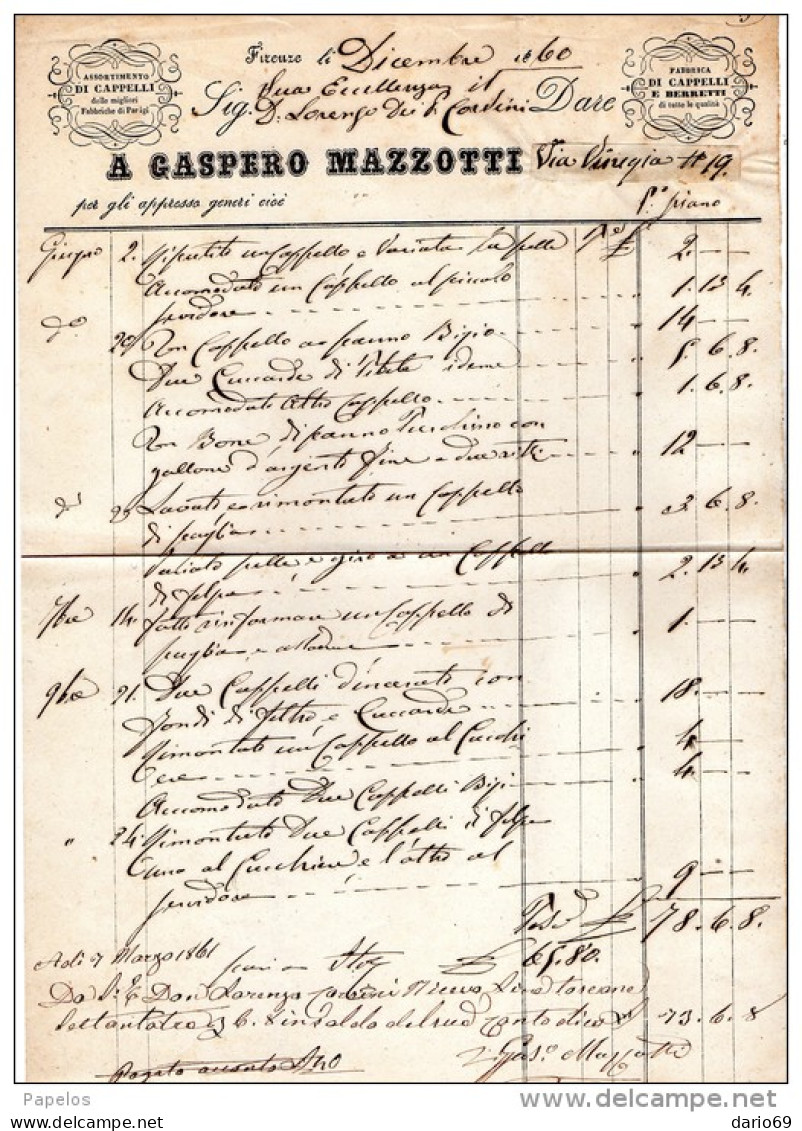 ASSORTIMENTO
DI CAPPELLI
delle migliori
Fabbriche di Parigi
Firenze li Dicembre 1860
FABBRICA
DI CAPPELLI
E BERRETTI
di tutte le qualità
Sua Eccellenza il
Sig. D. Lorenzo Dei P. Corsini Dare
A GASPERO MAZZOTTI Via Vinegia # 19.
per gli appresso generi cioè P.º piano
Giugno 2. Ripulito un Cappello e Variata la pelle 2. — —
Accomodato un Cappello al piccolo
servidore 1. 13 4.
d.º 20 Un Cappello di panno Bigio 14 — —
Due Cuccarde di idem 5. 6. 8.
Accomodato Altro Cappello 1. 6. 8.
Un Bone di panno Turchino con
gallone d'argento fine e due 12 — —
Lavato e rimontato un Cappello
di paglia 6. 8.
Variato pelle e giro a un Cappello
di felpa 2. 13 4.
7bre 14. Fatto rinformare un Cappello di
paglia 1. —
9bre 21. Due Cappelli d'incerato con
fondi di feltro e Cuccarde 18. — —
Rimontato un Cappello al Cucchi
ere 4 —
Accomodato Due Cappelli Bigi 4. —
" 24. Rimontato Due Cappelli di felpa
uno al Cucchiere e l'altro al
servidore 9 — —
78. 6. 8.
65.80.
A dì 7 Marzo 1861
Da S. E. Don Lorenzo Corsini Lire toscane
Settantatre 6. 8 in saldo del sud. conto dico 73. 6. 8
Gasp.º Mazzotti
Pagato
Papelos
delcampe.net
dario69